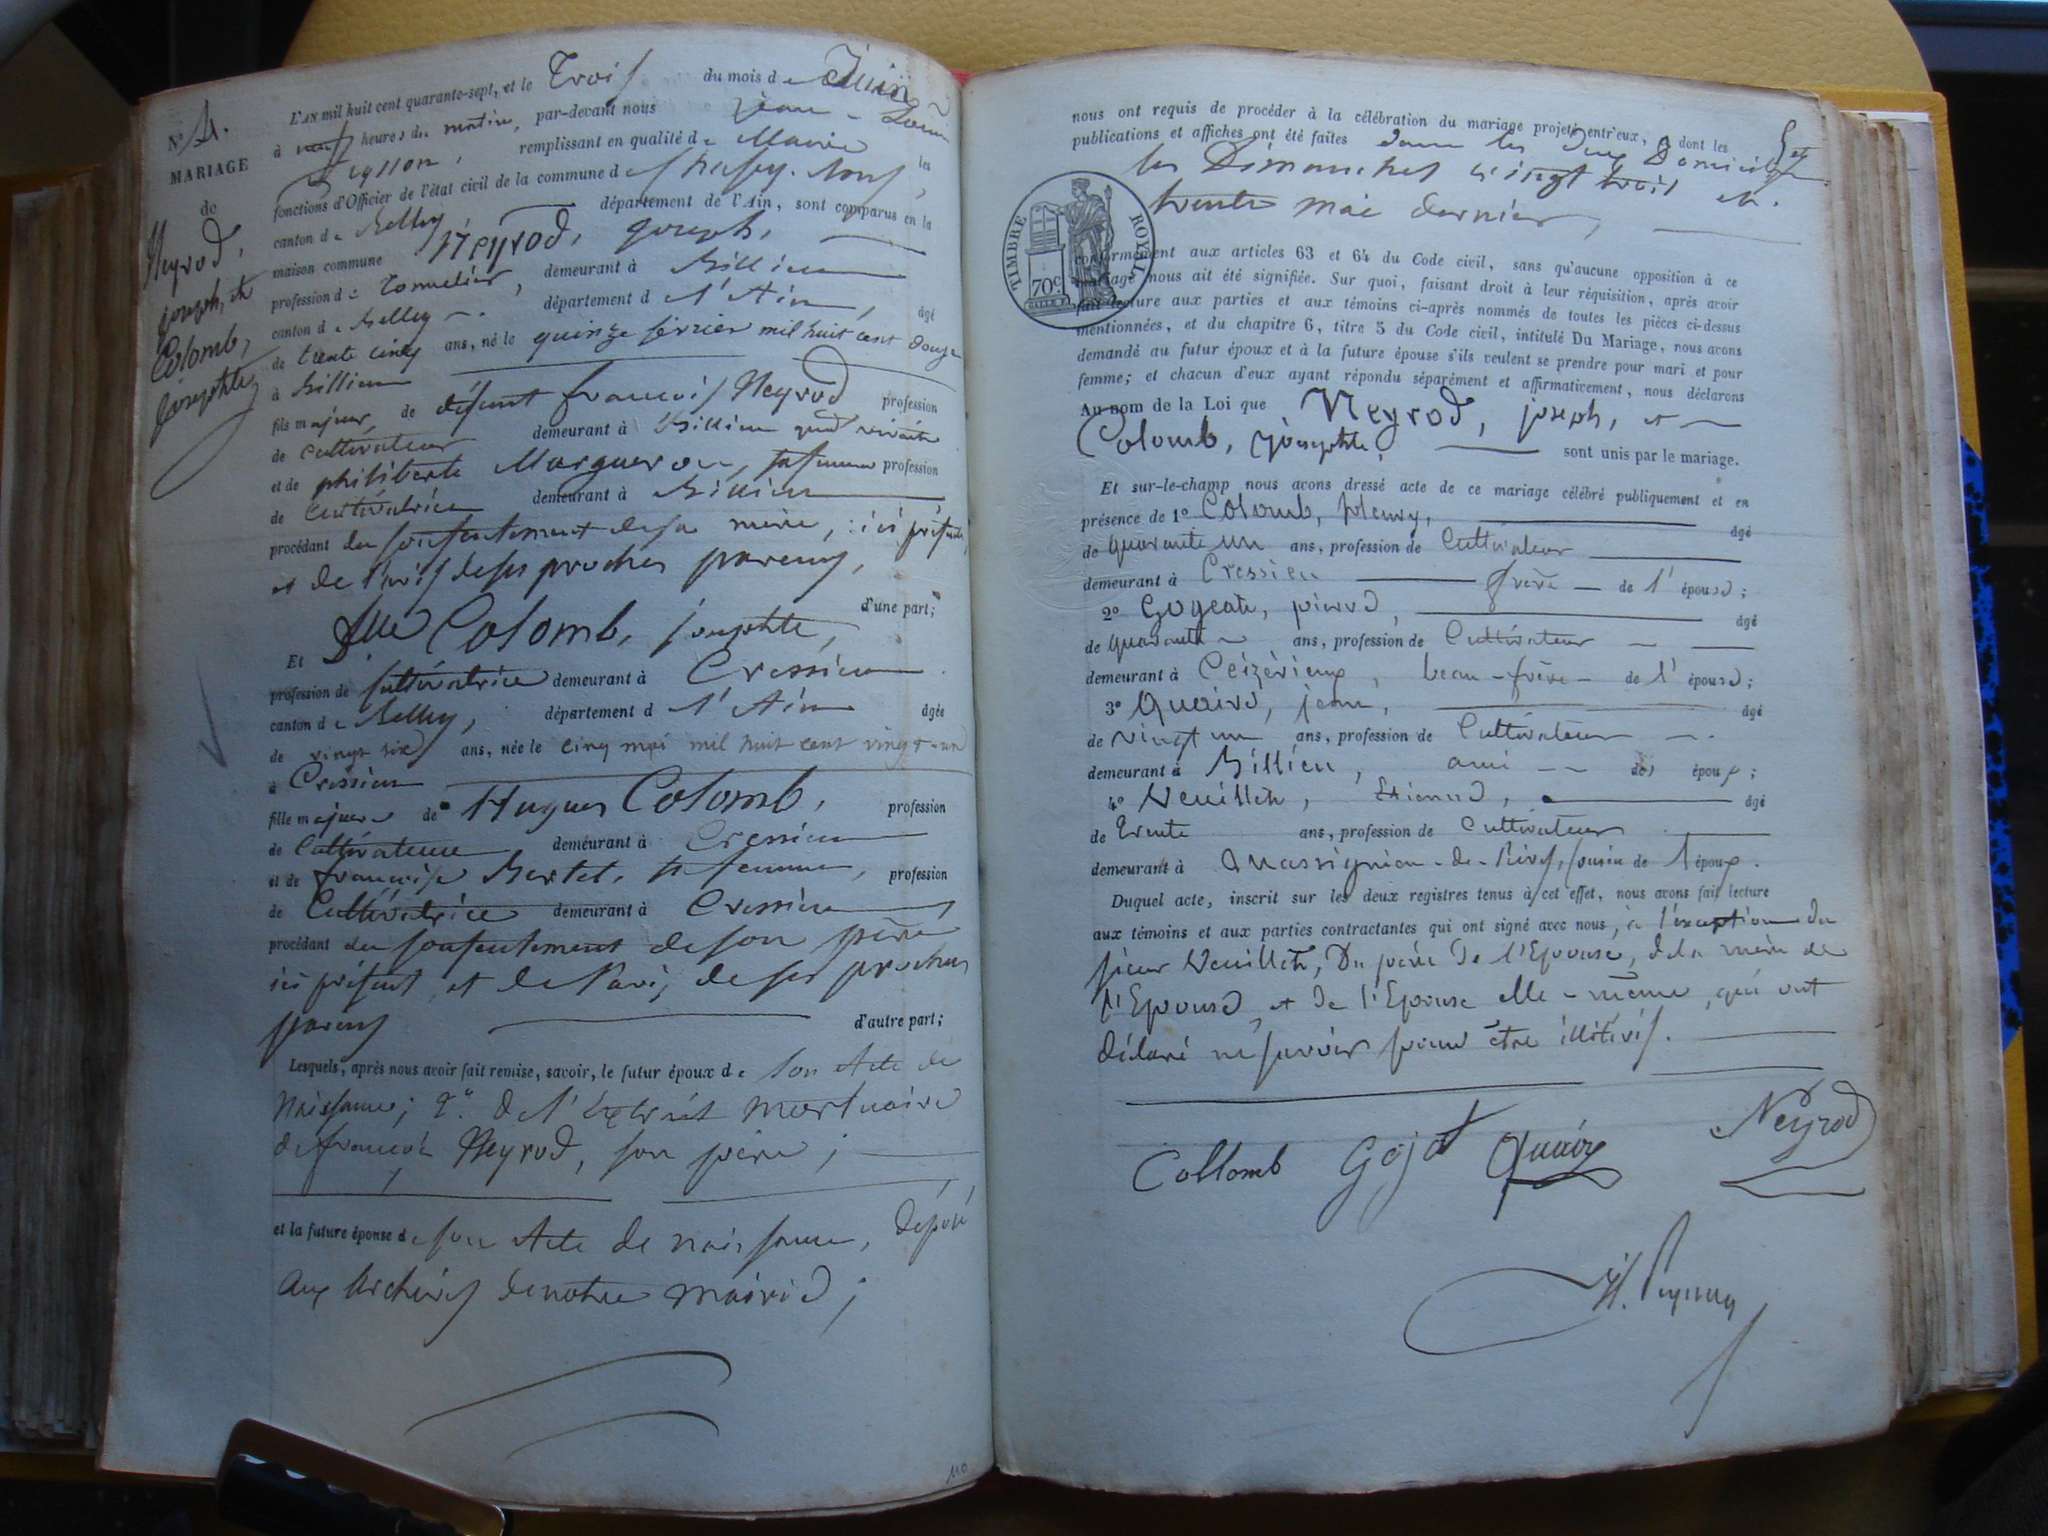 N° 4.
MARIAGE
de
Neyrod,
joseph, et
Colomb,
josephte
L'AN mil huit cent quarante-sept, et le Trois du mois de Juin
à neuf heures du matin, par-devant nous jean-Louis
Peysson, remplissant en qualité de Maire les
fonctions d'Officier de l'état civil de la commune de
canton de Belley, département de l'Ain, sont comparus en la
maison commune Neyrod, joseph,
profession de Tonnelier, demeurant à Billieu
canton de Belley département de l'Ain, âgé
de trente cinq ans, né le quinze février mil huit cent douze
à Billieu
fils majeur, de défunt francois Neyrod profession
de Cultivateur demeurant à Billieu quand vivait
et de philiberte Margueron, sa femme profession
de Cultivatrice demeurant à Billieu
procédant du consentement de sa mère, ici présente,
et de l'avis de ses proches parens,
d'une part;
Et Dlle Colomb, josephte,
profession de Cultivatrice demeurant à Cressieu
canton de Belley, département de l'Ain âgée
de vingt six ans, née le cinq mai mil huit cent vingt-un
à Cressieu
fille majeure de Hugues Colomb, profession
de Cultivateur demeurant à Cressieu
et de françoise Bertet, sa femme, profession
de Cultivatrice demeurant à Cressieu
procédant du consentement de son père
ici présent, et de l'avis de ses proches
parens d'autre part;
Lesquels, après nous avoir fait remise, savoir, le futur époux de son Acte de
Naissance; 2°. de l'Extrait mortuaire
de françois Neyrod, son père;
et la future épouse de son Acte de naissance, déposé
aux Archives de notre mairie;
110
nous ont requis de procéder à la célébration du mariage projeté entr'eux, dont les
publications et affiches ont été faites dans les deux Domiciles
les Dimanches vingt trois et
trente mai dernier,
TIMBRE ROYAL
70c
conformément aux articles 63 et 64 du Code civil, sans qu'aucune opposition à ce
mariage nous ait été signifiée. Sur quoi, faisant droit à leur réquisition, après avoir
fait lecture aux parties et aux témoins ci-après nommés de toutes les pièces ci-dessus
mentionnées, et du chapitre 6, titre 5 du Code civil, intitulé Du Mariage, nous avons
demandé au futur époux et à la future épouse s'ils veulent se prendre pour mari et pour
femme; et chacun d'eux ayant répondu séparément et affirmativement, nous déclarons
Au nom de la Loi que Neyrod, joseph, et
Colomb, josephte, sont unis par le mariage.
Et sur-le-champ nous avons dressé acte de ce mariage célébré publiquement et en
présence de 1° Colomb, fleury, âgé
de quarante un ans, profession de Cultivateur
demeurant à Cressieu frère de l'épouse;
2° Gogeat, pierre, âgé
de quarante ans, profession de Cultivateur
demeurant à Ceizérieux, beau-frère de l'épouse;
3° Quaire, jean, âgé
de vingt un ans, profession de Cultivateur
demeurant à Billieu, ami de époux;
4° Veuillet, Etienne, âgé
de Trente ans, profession de Cultivateur
demeurant à Massignieu-de-Rives, cousin de l'époux.
Duquel acte, inscrit sur les deux registres tenus à cet effet, nous avons fait lecture
aux témoins et aux parties contractantes qui ont signé avec nous, à l'exception du
sieur Veuillet, Du père de l'Epouse, de la mère de
l'Epoux, et de l'Epouse elle-même, qui ont
déclaré ne savoir pour être illitérés.
Collomb Gojat Quaire Neyrod